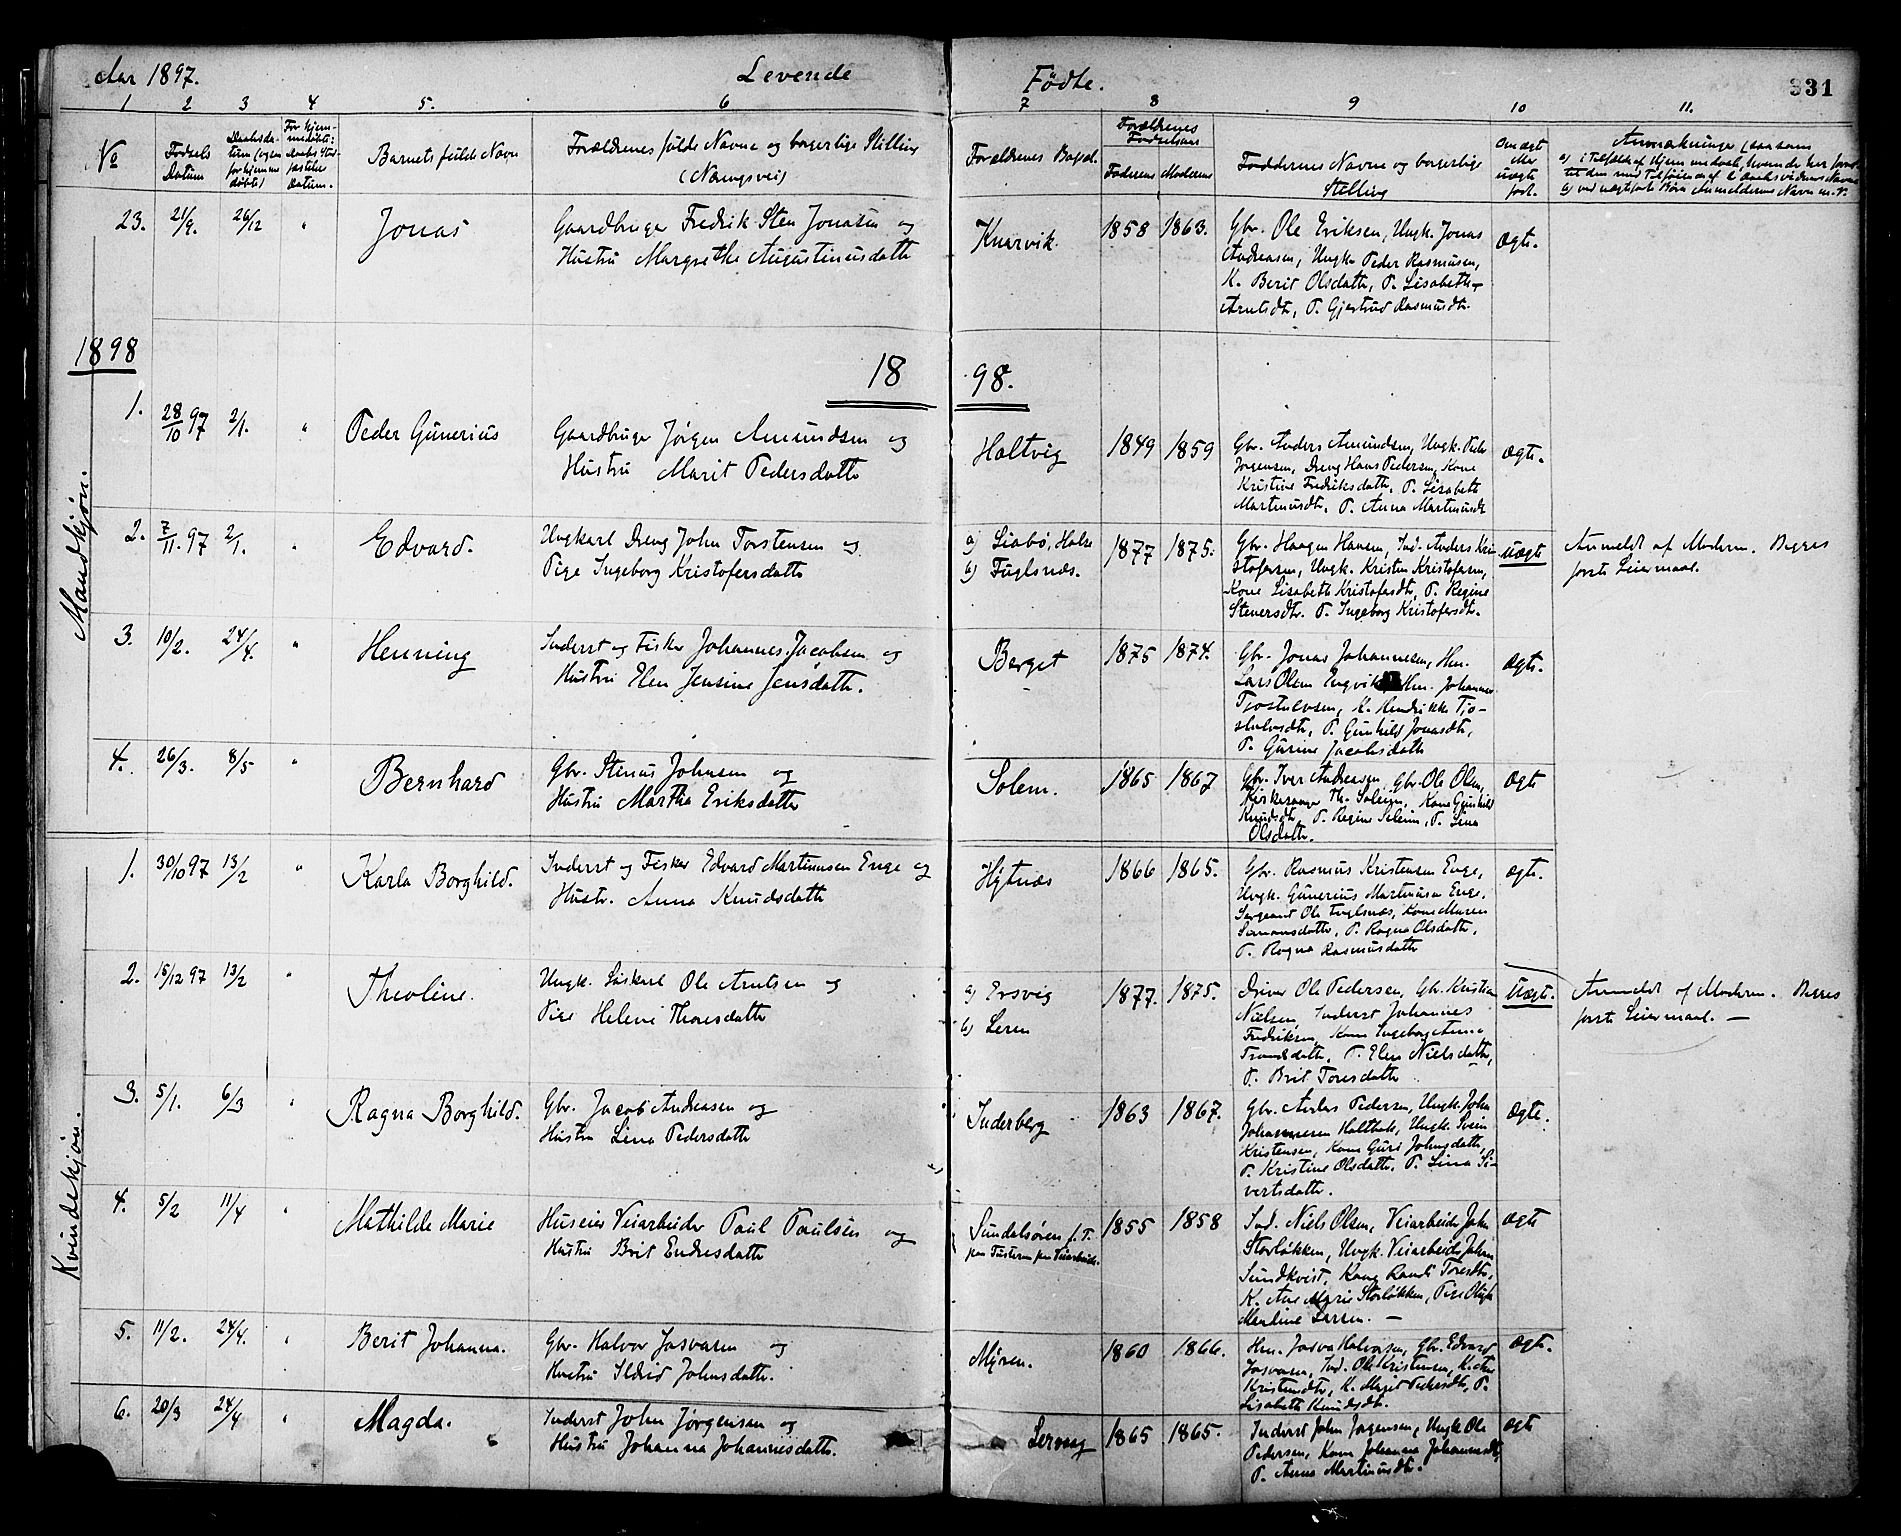 Aar 1897. Levende Fødte. 331
1 2 3 4 5. 6 7 8 9 10 11.
No
Fødsels Datum
Barnets fulde Navn
Forældrenes fulde Navne og borgerlige Stilling
(Næringsvei)
Forældrenes Bopæl.
Forældrenes Fødselsaar
Faderens Moderens
Faddernes Navne og borgerlige
Stilling
Om ægte eller uægte født.
Anmærkninger (saasom
23. 21/9. 26/12 " Jonas
Gaardbruger Fredrik Sten Jonasen og
Hustru Margrethe Augustinusdatter
Knarvik. 1858 1863.
Gbr. Ole Eriksen, Ungk. Jonas
Andreasen, Ungk. Peder Rasmusen,
K. Berit Olsdatter, P. Lisabeth
Arntsdtr, P. Gjertrud Rasmusdtr.
Ægte.
1898
18 98.
Mandkjøn.
1. 28/10 97 2/1. " Peder Gunerius
Gaardbruger Jørgen Amundsen og
Hustru Marit Pedersdatter
Holtvig 1849 1859
Gbr. Anders Amundsen, Ungk. Peder
Jørgensen, Dreng Hans Pedersen, Kone
Kristine Fredriksdatter, P. Lisabeth
Martinusdtr, P. Anna Martinusdtr
Ægte.
2. 7/11. 97 2/1. " Edvard.
Ungkarl Dreng John Torstensen og
Pige Ingeborg Kristofersdatter
a) Liabø, Halse
b) Fuglsnæs.
1877 1875.
Gbr. Haagen Hansen, Ind. Anders Kri-
stofersen, Ungk. Kristen Kristofersen,
Kone Lisabeth Kristofersdtr, P. Regine
Siversdtr. P. Ingeborg Kristofersdtr.
Uægte
Anmeldt af Moderen. Begges
første Leiermaal.
3. 10/2. 24/4. " Henning
Inderst og Fisker Johannes Jacobsen og
Hustru Elen Jensine Jensdatter.
Berget 1875 1874.
Gbr. Jonas Johannesen, Hm.
Lars Olsen Engvik, Hm. Johannes
Tjostulvsen, K. Hendrikke Tjo-
stulvsdtr, P. Gunhild Jonasdtr,
P. Gurine Jacobsdatter
Ægte.
4. 26/3. 8/5 " Bernhard
Gbr. Stinus Johnsen og
Hustru Martha Eriksdatter
Solem. 1865 1867
Gbr. Iver Andreasen, Gbr. Ole Olsen,
Kirkesanger Th. Solem, Kone Gunhild
Knudsdtr, P. Regine Solem, P. Lina
Olsdatter.
Ægte
Kvindekjøn.
1. 30/10 97 13/2 " Karla Borghild.
Inderst og Fisker Edvard Martinusen Enge og
Hustr. Anna Knudsdatter
Hytnæs 1866 1865.
Gbr. Rasmus Kristensen Enge,
Ungk. Gunerius Martinusen Enge,
Sergeant Ole Fuglsnæs, Kone Maren
P. Ragna Olsdatter,
P. Ragna Rasmusdatter
ægte.
2. 15/12 97 13/2 " Theoline.
Ungk. Ole Arntsen og
Pige Helene Thoresdatter
a) Ersvig
b) Leren
1877. 1875.
Ole Pedersen, Gbr. Kristian
Nielsen, Inderst Johannes
Fredriksen, Kone Ingeborg Anna
P. Elen Nielsdatter,
P. Brit Toresdatter
Uægte.
Anmeldt af Moderen. Begges
første Leiermaal. —
3. 5/1. 6/3 " Ragna Borghild.
Gbr. Jacob Andreasen og
Hustru Lina Pedersdatter
Inderberg 1863 1867.
Gbr. Anders Pedersen, Ungk. John
Johannesen Holtbak, Ungk. Svein
Kristensen, Kone Guri Johnsdatter,
P. Kristine Olsdatter. P. Lina Si-
vertsdatter.
Ægte.
4. 5/2 11/4 " Mathilde Marie
Huseier Veiarbeider Paul Paulsen og
Hustru Brit Endresdatter
Sundalsøren f. T.
paa Tusteren paa Veiarbeide.
1855 1858
Ind. Niels Olsen, Veiarbeider John
Storløkken, Ungk. Veiarbeider Johan
Sundkvist, Kone Randi Toresdtr,
K. Ane Marie Storløkken, Pige Oluffa
—
Ægte
5. 11/2. 24/4. " Berit Johanna.
Gbr. Halvor Josvasen og
Hustru Ildrid Johnsdatter.
Myren. 1860 1866.
Hm. Josva Halvorsen, Gbr. Edvard
Josvasen, Ind. Ole Kristensen, K. Ane
Kristensdtr, K. Marit Pedersdtr, P.
Lisabeth Knudsdtr.
Ægte.
6. 20/3 24/4 " Magda.
Inderst John Jørgensen og
Hustru Johanna Johannesdatter.
Lervig 1865 1865.
Inderst John Jørgensen, Ungk. Ole
Pedersen, Kone Johanna Johannesdtr,
P. Anna Martinusdtr.
Ægte